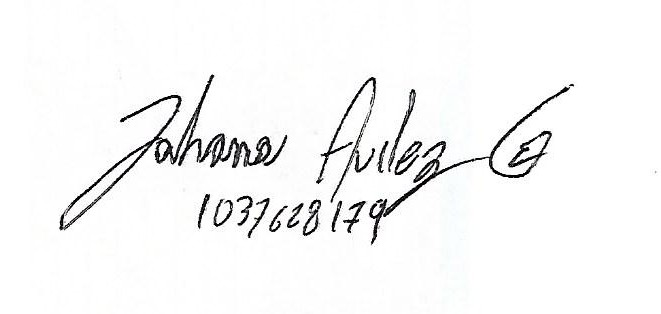 Johana Avilez G
1037628179